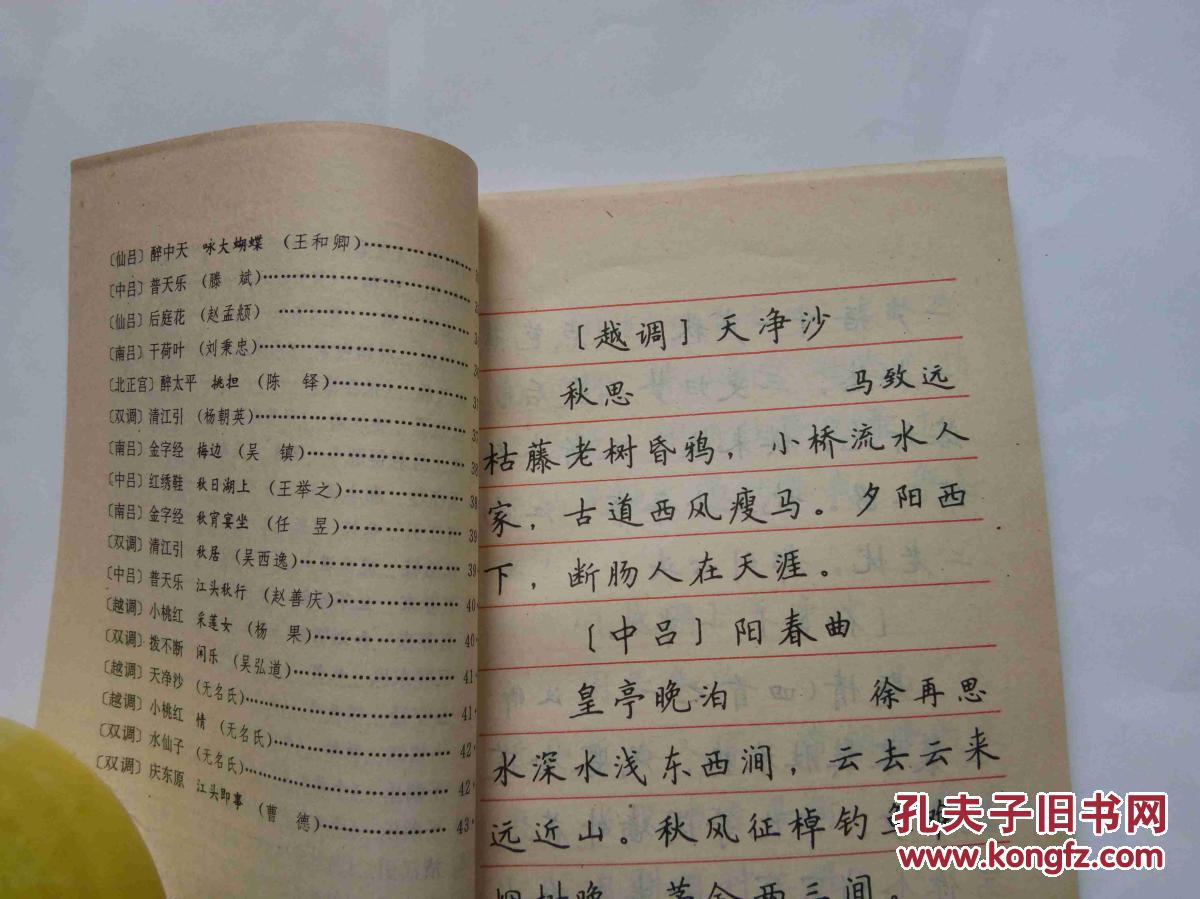 〔仙吕〕醉中天 咏大蝴蝶 (王和卿)…………
〔中吕〕普天乐 (滕 斌)…………………
〔仙吕〕后庭花 (赵孟頫) …………………
〔南吕〕干荷叶 (刘秉忠)…………………
〔北正宫〕醉太平 挑担 (陈 铎)…………37
〔双调〕清江引 (杨朝英)…………………37
〔南吕〕金字经 梅边 (吴 镇)……………38
〔中吕〕红绣鞋 秋日湖上 (王举之)………39
〔南吕〕金字经 秋宵宴坐 (任 昱)………39
〔双调〕清江引 秋居 (吴西逸)……………39
〔中吕〕普天乐 江头秋行 (赵善庆)………40
〔越调〕小桃红 采莲女 (杨 果)…………40
〔双调〕拨不断 闲乐 (吴弘道)……………41
〔越调〕天净沙 (无名氏)…………………41
〔越调〕小桃红 情 (无名氏)………………42
〔双调〕水仙子 (无名氏)…………………42
〔双调〕庆东原 江头即事 (曹 德)………43
[越调]天净沙
秋思 马致远
枯藤老树昏鸦，小桥流水人
家，古道西风瘦马。夕阳西
下，断肠人在天涯。
[中吕]阳春曲
皇亭晚泊 徐再思
水深水浅东西涧，云去云来
远近山。秋风征棹钓鱼
烟树晚，茅舍两三间。
孔夫子旧书网
www.kongfz.com